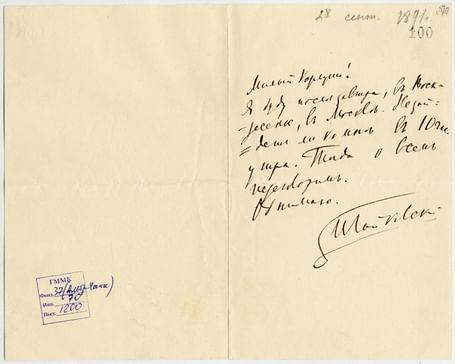 28 сент. 1891 г.
100
Милый Корещ!
Я буду послезавтра, в Воск-
ресенье, в Москве. Не зай-
дешь ли ко мне в 10 час.
утра. Тогда о всем
переговорим.
Обнимаю.
П Чайковский
ГММБ
Фонд
Инв.
Пост. 1200